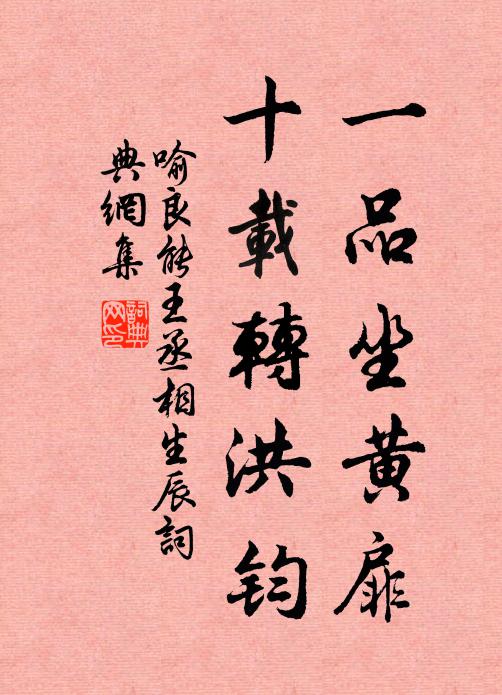 一品坐黄扉
十載轉洪鈞
喻良能王丞相生辰詞
典網集
詞典网印